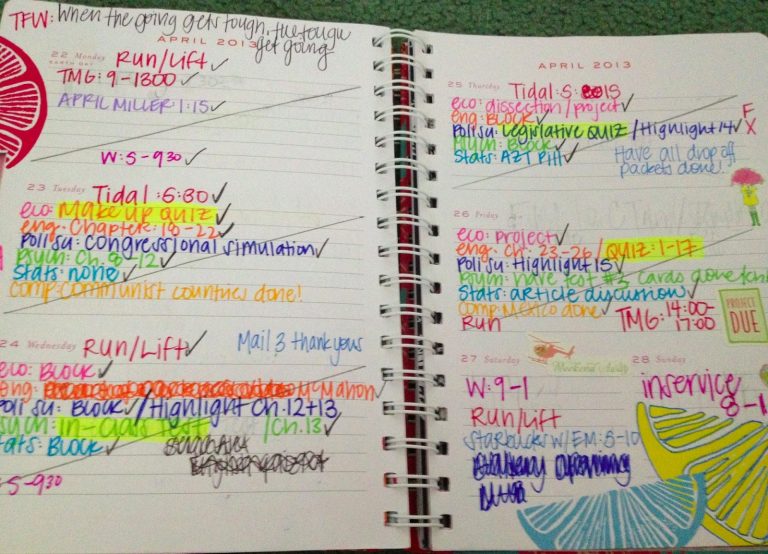 TFW: When the going gets tough, the tough
get going
APRIL 2013
22 Monday
EARTH DAY
Run/Lift ✓
TMG: 9-1300 ✓
APRIL MILLER: 1:15 ✓
W: 5-930 ✓
23 Tuesday
Tidal: 5:30 ✓
eco: Make up quiz ✓
eng: Chapter: 18-22 ✓
Poli su: congressional simulation ✓
Psych: Ch. 8-12 ✓
Stats: none ✓
Comp: communist countries done!
24 Wednesday
RUN/Lift ✓
Mail 3 thank yous
eco: BLOCK ✓
eng: McMahon ✓
Poli su: BLOCK ✓/Highlight Ch. 12+13
psych: in-class test /Ch. 13 ✓
Stats: BLOCK ✓
W: 5-930
APRIL 2013
25 Thursday
Tidal: 5:
eco: dissection/project ✓
eng: BLOCK ✓
Poli su: Legislative QUIZ /Highlight 14 ✓
F
X
Psych: BLOCK ✓
Stats: AZT Pill ✓
Have all drop off
packets done!
26 Friday
eco: project ✓
eng: Ch. 23-26/QUIZ: 1-17
Poli su: Highlight 15 ✓
Psych: have test #3 cards done
Stats: article discussion ✓
Comp: Mexico done ✓
Run
TMG: 14:00-
17:00
PROJECT
DUE
27 Saturday
W: 9-1
Run/Lift
Starbucks w/EM: 8-10
28 Sunday
inservice
8-1